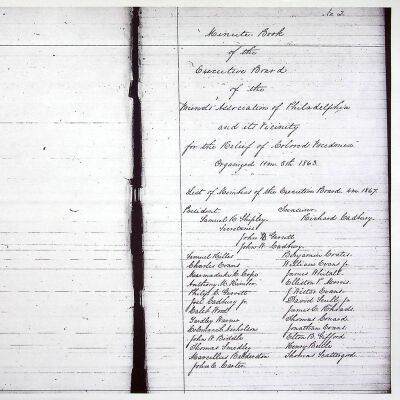 No. 2.
Minute Book
of the
Executive Board
of the
Friends Association of Philadelphia
and its Vicinity
for the Relief of Colored Freedmen
Organized 11mo 5th 1863.
List of Members of the Executive Board 4mo 1867.
President Treasurer
Samuel R. Shipley. Richard Cadbury.
Secretaries
John B. Garrett
John W. Cadbury.
Samuel Hilles Benjamin Coates.
Charles Evans William Evans Jr.
Marmaduke C. Cope James Whitall.
Anthony M. Kimber Elliston P. Morris.
Philip C. Garrett J. Wistar Evans.
Joel Cadbury Jr. David Scull Jr.
Caleb Wood James E. Rhoads.
Yardley Warner Thomas Conard.
Nicholson Jonathan Evans
John W. Biddle Elton B. Gifford
Thomas Smedley Henry Bettle
Marcellus Balderston Thomas Scattergood.
John E. Carter.